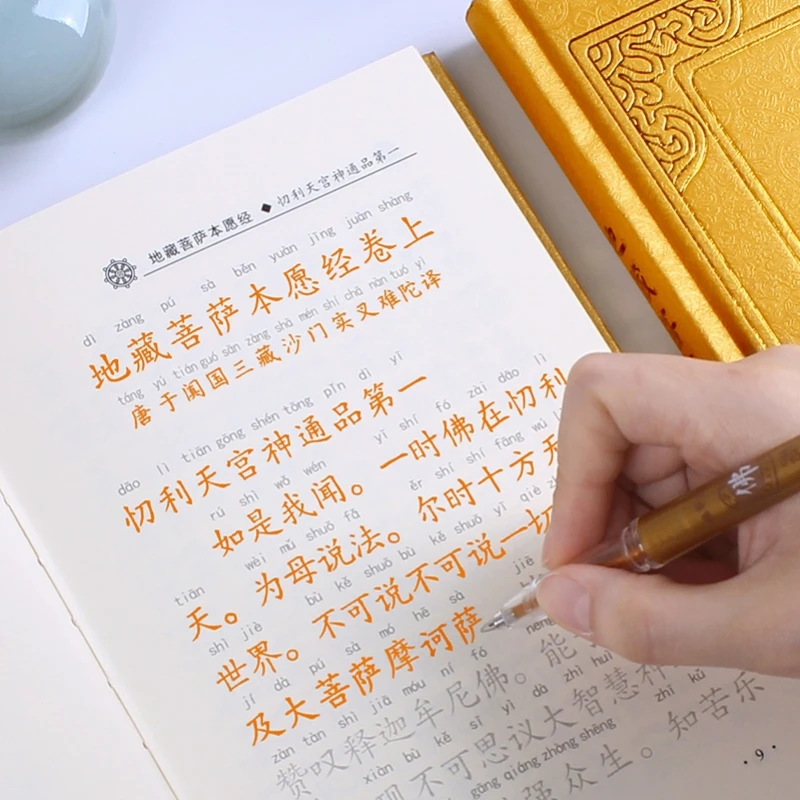 地藏菩萨本愿经◆忉利天宫神通品第一
dì zàng pú sà běn yuàn jīng juàn shàng
地藏菩萨本愿经卷上
táng yú tián guó sān zàng shā mén shí chā nán tuó yì
唐于阗国三藏沙门实叉难陀译
dāo lì tiān gōng shén tōng pǐn dì yī
忉利天宫神通品第一
rú shì wǒ wén yī shí fó zài dāo lì
如是我闻。一时佛在忉利
tiān wèi mǔ shuō fǎ ěr shí shí fāng wú
天。为母说法。尔时十方无
shì jiè bù kě shuō bù kě shuō yī qiè
世界。不可说不可说一切
jí dà pú sà mó hē sà jiē
及大菩萨摩诃萨
zàn tàn shì jiā móu ní fó néng
赞叹释迦牟尼佛。能
xiàn bù kě sī yì dà zhì huì
现不可思议大智慧神
gāng qiáng zhòng shēng zhī kǔ
强众生。知苦乐
·9·
佛